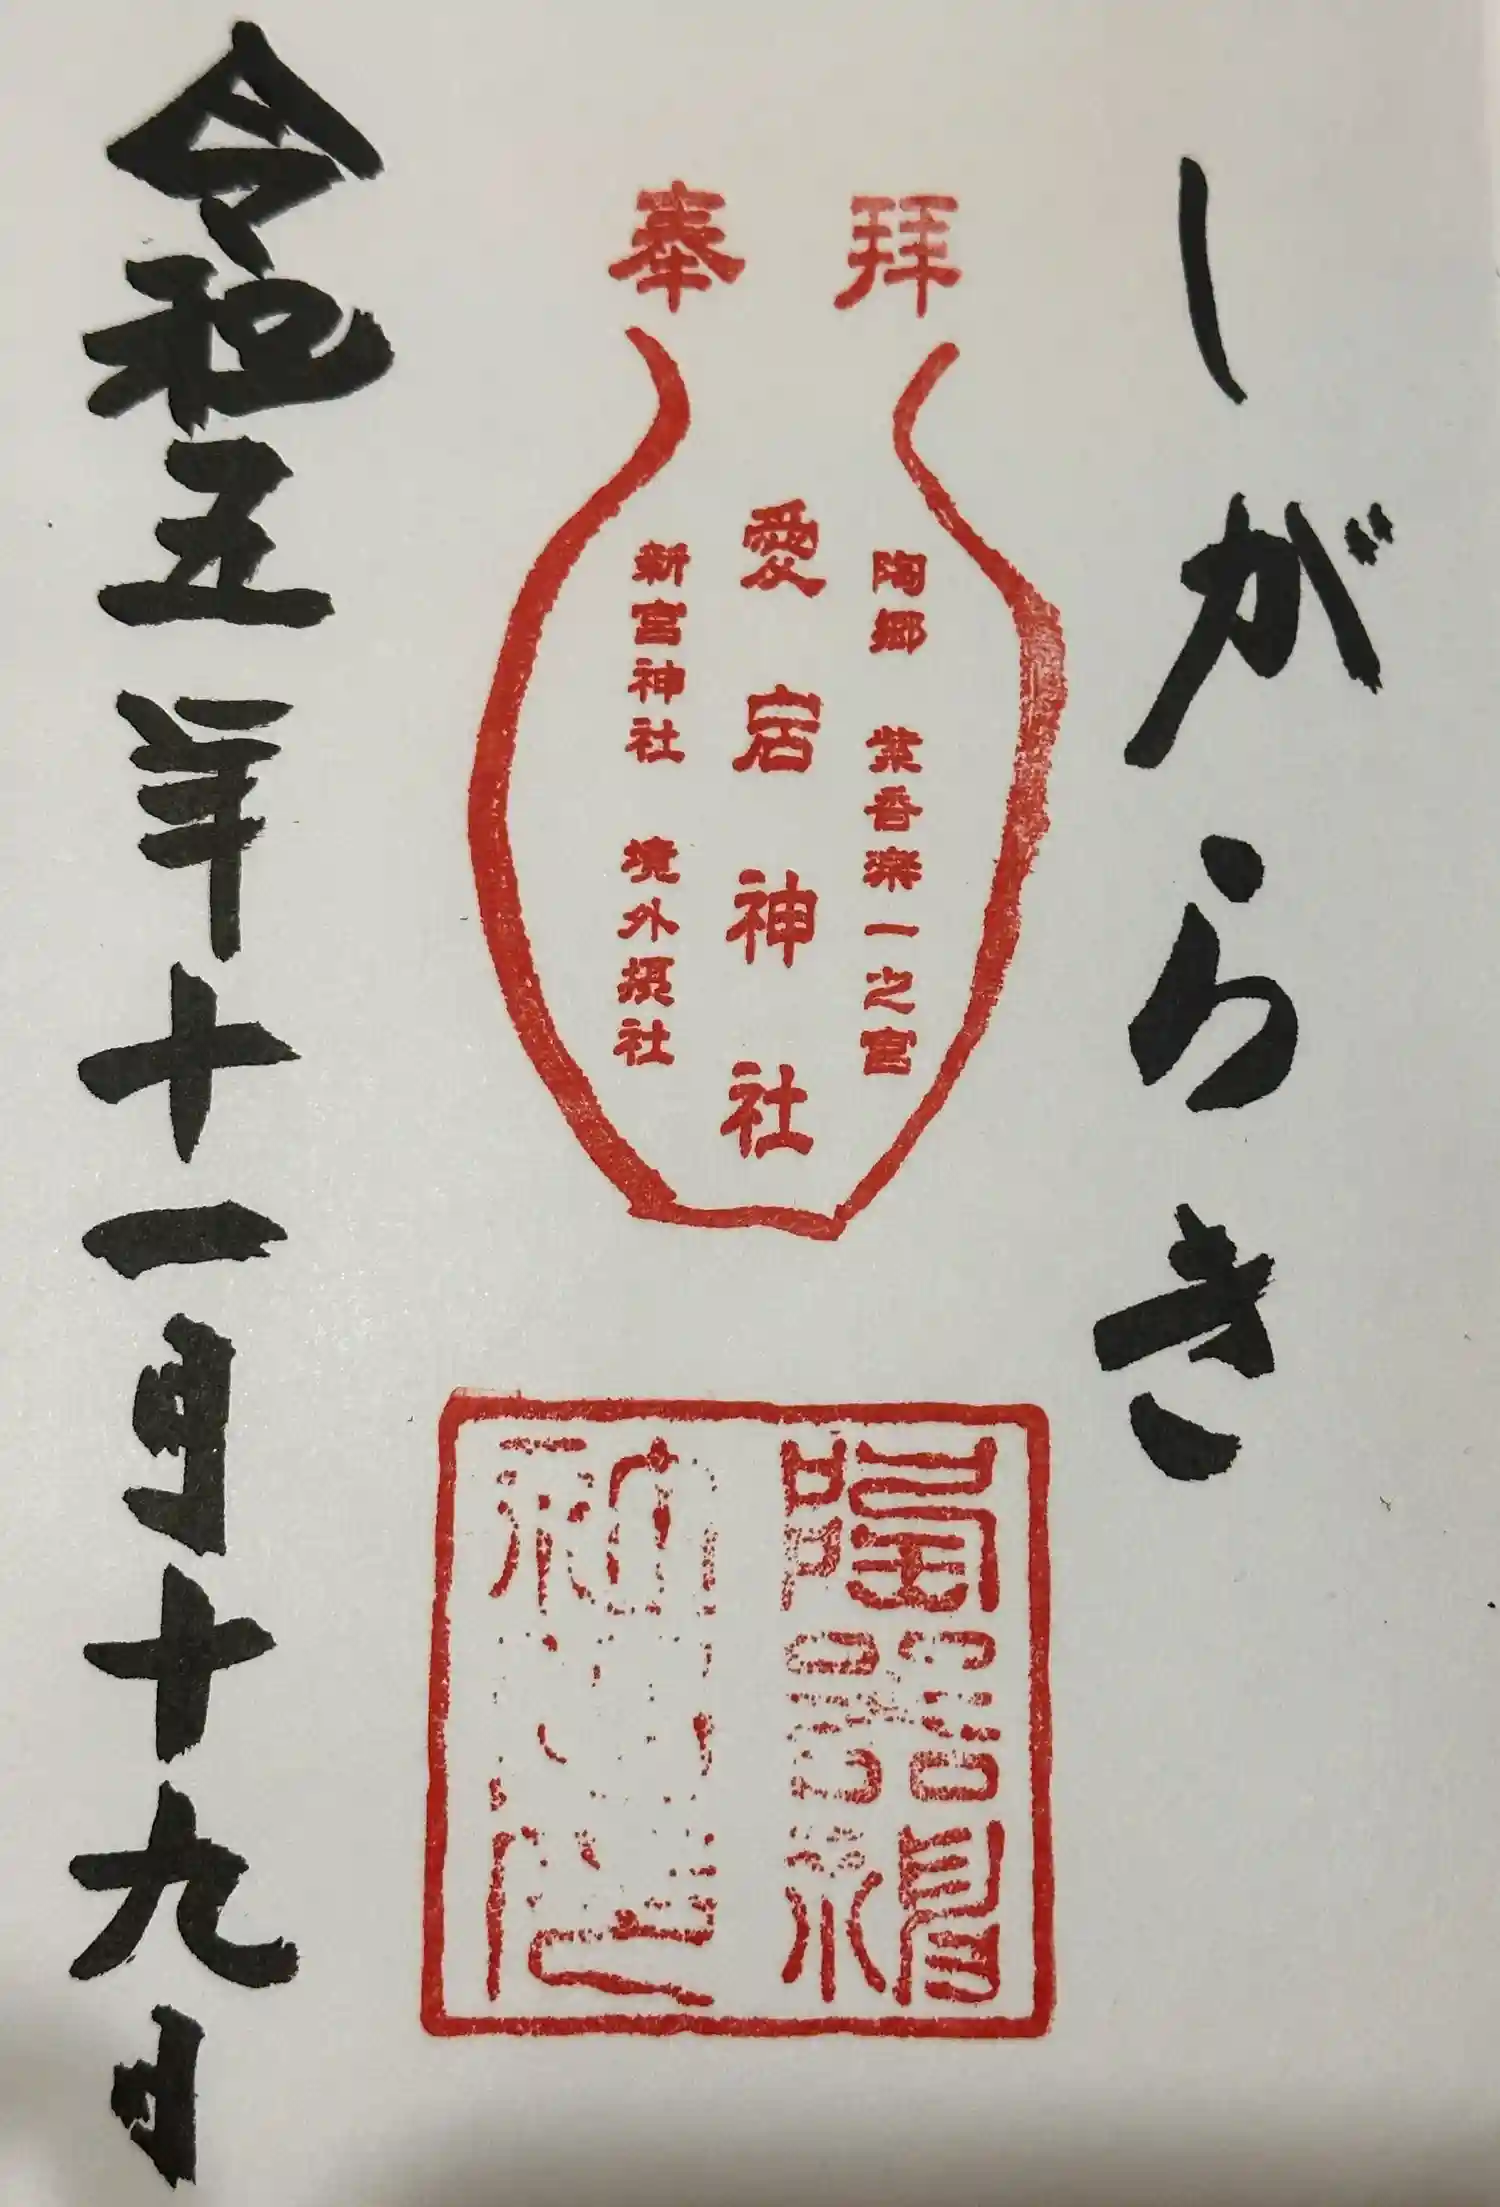 しがらき
奉拝
陶郷 紫香楽一之宮
愛宕神社
新宮神社 境外摂社
陶器
神
令和五年十一月十九日